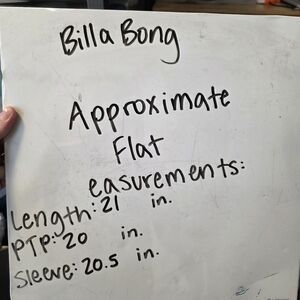 Billa Bong
Approximate
Flat
easurements:
Length: 21 in.
PTP: 20 in.
Sleeve: 20.5 in.